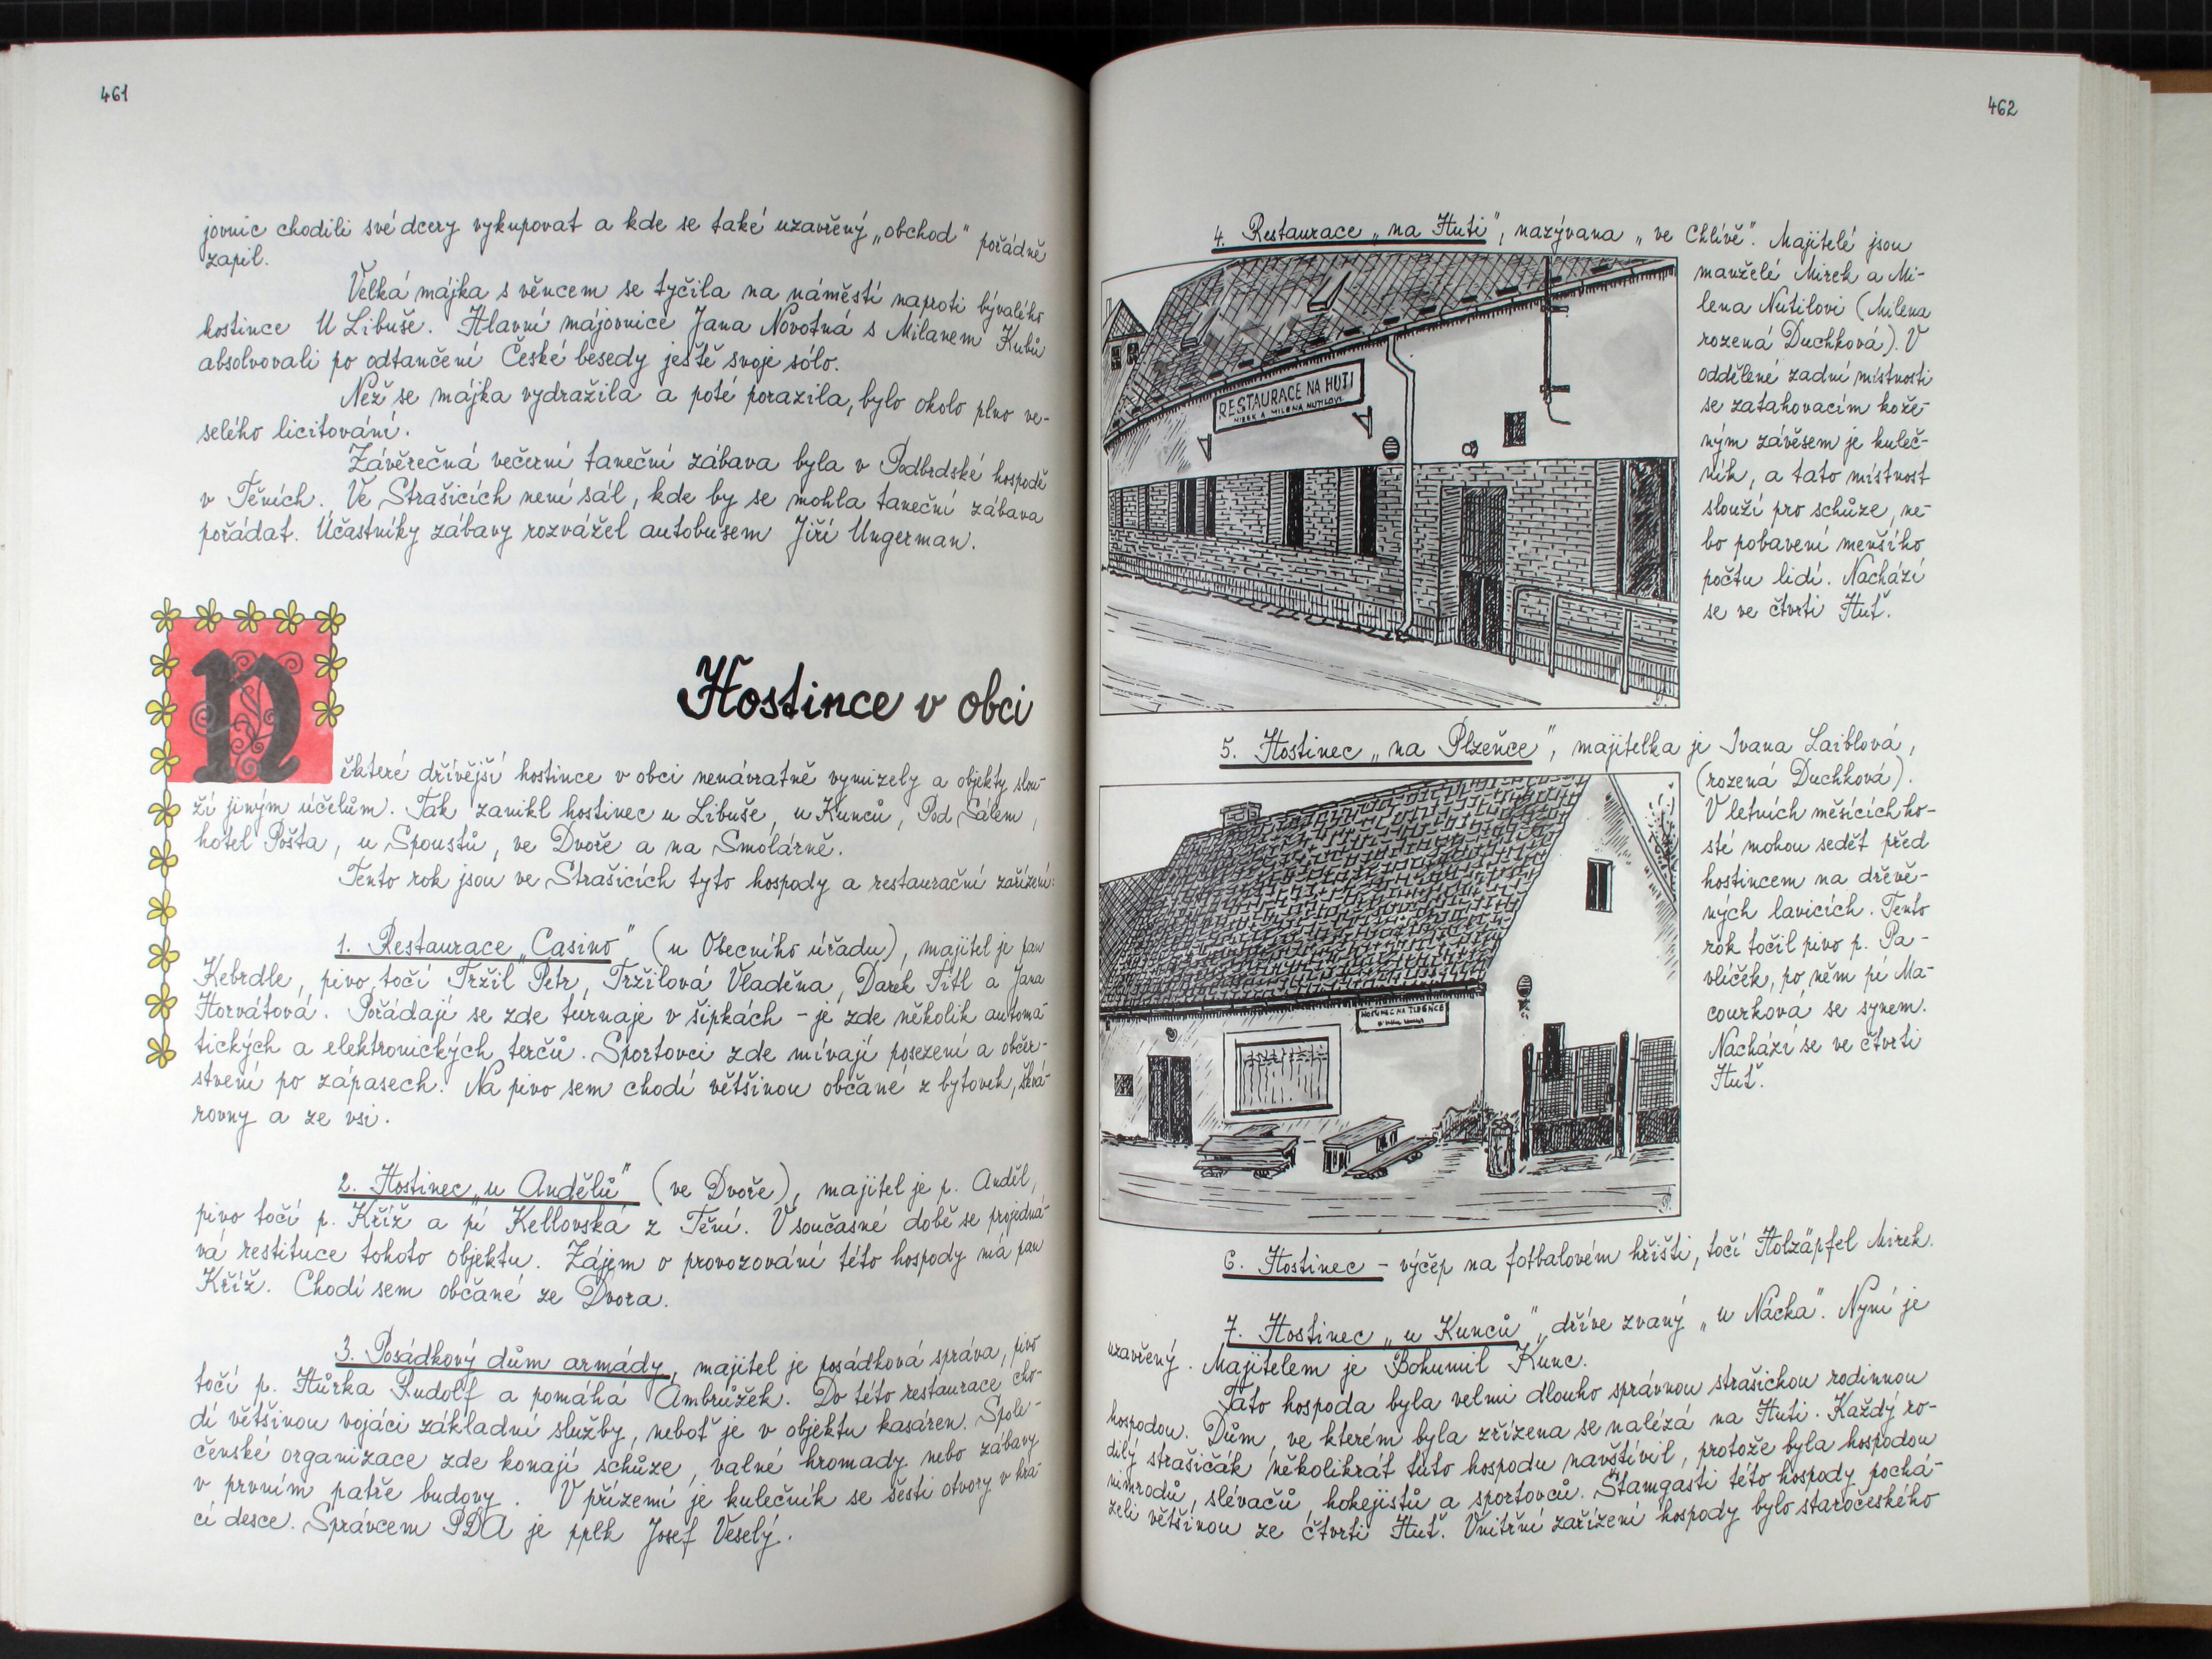 461
jovnic chodili své dcery vykupovat a kde se také uzavřený „obchod" pořádně
zapil.
Velká májka s věncem se tyčila na náměstí naproti bývalého
hostince U Libuše. Hlavní májovnice Jana Novotná s Milanem Kubů
absolvovali po odtančení České besedy ještě svoje sólo.
Než se májka vydražila a poté porazila, bylo okolo plno ve-
selého licitování.
Závěrečná večerní taneční zábava byla v Podbrdské hospodě
v Těních. Ve Strašicích není sál, kde by se mohla taneční zábava
pořádat. Účastníky zábavy rozvážel autobusem Jiří Ungerman.
Hostince v obci
Některé dřívější hostince v obci nenávratně vymizely a objekty slou-
ží jiným účelům. Tak zanikl hostinec u Libuše, u Kunců, Pod Sálem,
hotel Pošta, u Spoustů, ve Dvoře a na Smolárně.
Tento rok jsou ve Strašicích tyto hospody a restaurační zařízení:
1. Restaurace „Casino" (u Obecního úřadu), majitel je pan
Kebrdle, pivo točí Tržil Petr, Tržilová Vladěna, Darek Fitl a Jana
Horvátová. Pořádají se zde turnaje v šipkách - je zde několik automa-
tických a elektronických terčů. Sportovci zde mívají posezení a občer-
stvení po zápasech. Na pivo sem chodí většinou občané z bytovek, Škvá-
rovny a ze vsi.
2. Hostinec „u Andělů" (ve Dvoře), majitel je p. Anděl,
pivo točí p. Kříž a pí Kellovská z Tění. V současné době se projedná-
vá restituce tohoto objektu. Zájem o provozování této hospody má pan
Kříž. Chodí sem občané ze Dvora.
3. Posádkový dům armády, majitel je posádková správa, pivo
točí p. Hůrka Rudolf a pomáhá Ambrůžek. Do této restaurace cho-
dí většinou vojáci základní služby, neboť je v objektu kasáren. Spole-
čenské organizace zde konají schůze, valné hromady nebo zábavy
v prvním patře budovy. V přízemí je kulečník se šesti otvory v hra-
cí desce. Správcem PDA je pplk Josef Veselý.
462
4. Restaurace „na Huti", nazývana „ve Chlívě". Majitelé jsou
manželé Mirek a Mi-
lena Nutilovi (Milena
rozená Duchková). V
oddělené zadní místnosti
se zatahovacím kože-
ným závěsem je kuleč-
ník, a tato místnost
slouží pro schůze, ne-
bo pobavení menšího
počtu lidí. Nachází
se ve čtvrti Huť.
RESTAURACE NA HUTI
MIREK A MILENA NUTILOVI
5. Hostinec „na Plzeňce", majitelka je Ivana Laiblová,
(rozená Duchková).
V letních měsících ho-
sté mohou sedět před
hostincem na dřevě-
ných lavicích. Tento
rok točil pivo p. Pa-
vlíček, po něm pí Ma-
courková se synem.
Nachází se ve čtvrti
Huť.
6. Hostinec - výčep na fotbalovém hřišti, točí Holzäpfel Mirek.
7. Hostinec „u Kunců" „dříve zvaný „u Nácka". Nyní je
uzavřený. Majitelem je Bohumil Kunc.
Tato hospoda byla velmi dlouho správnou strašickou rodinnou
hospodou. Dům, ve kterém byla zřízena se nalézá na Huti. Každý ro-
dilý strašičák několikrát tuto hospodu navštívil, protože byla hospodou
nimrodů, slévačů, hokejistů a sportovců. Štamgasti této hospody pochá-
zeli většinou ze čtvrti Huť. Vnitřní zařízení hospody bylo staročeského